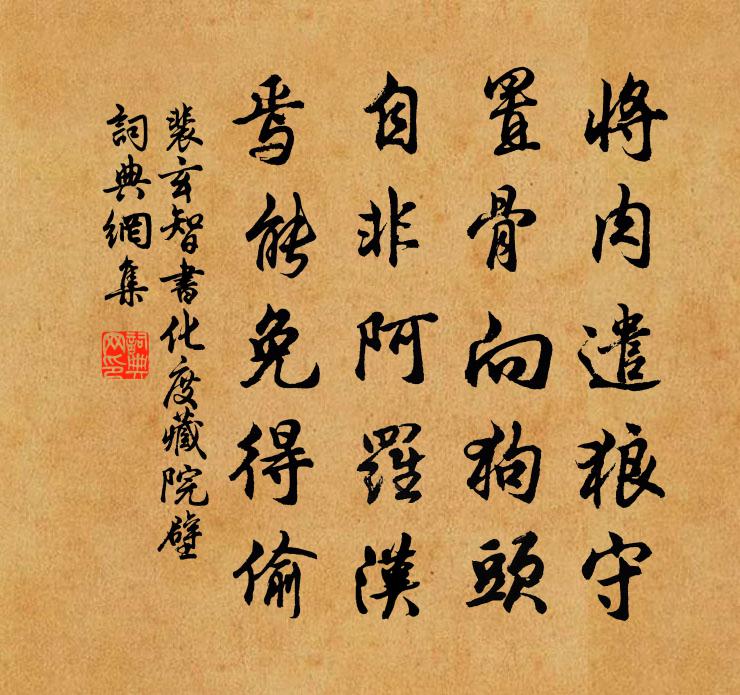 將肉遣狼守
置骨向狗頭
自非阿羅漢
焉能免得偷
裴玄智書化度藏院壁
詞典網集
詞典
网印